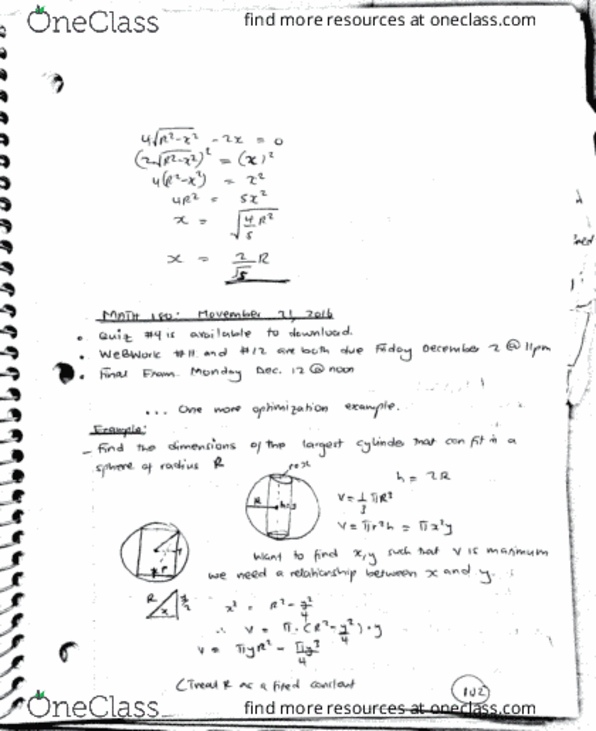 OneClass
find more resources at oneclass.com
4√R²-x² - 2x = 0
(2√R²-x²)² = (x)²
4(R²-x²) = x²
4R² = 5x²
x = √4/5 R²
x = 2/√5 R
MATH 180: November 21, 2016
• Quiz #4 is available to download.
• WeBWork #11 and #12 are both due Friday December 2 @ 11pm
• Final Exam. Monday Dec. 12 @ noon
... One more optimization example.
Example:
- Find the dimensions of the largest cylinder that can fit in a
sphere of radius R
r=x
h = 2R
R
h=y
V = 1/3 πR³
V = πr²h = πx²y
want to find x,y such that V is maximum
we need a relationship between x and y.
r
R
x
y/2
x² = R² - y²/4
∴ V = π·(R² - y²/4)·y
V = πyR² - πy³/4
(Treat R as a fixed constant
102
OneClass
find more resources at oneclass.com